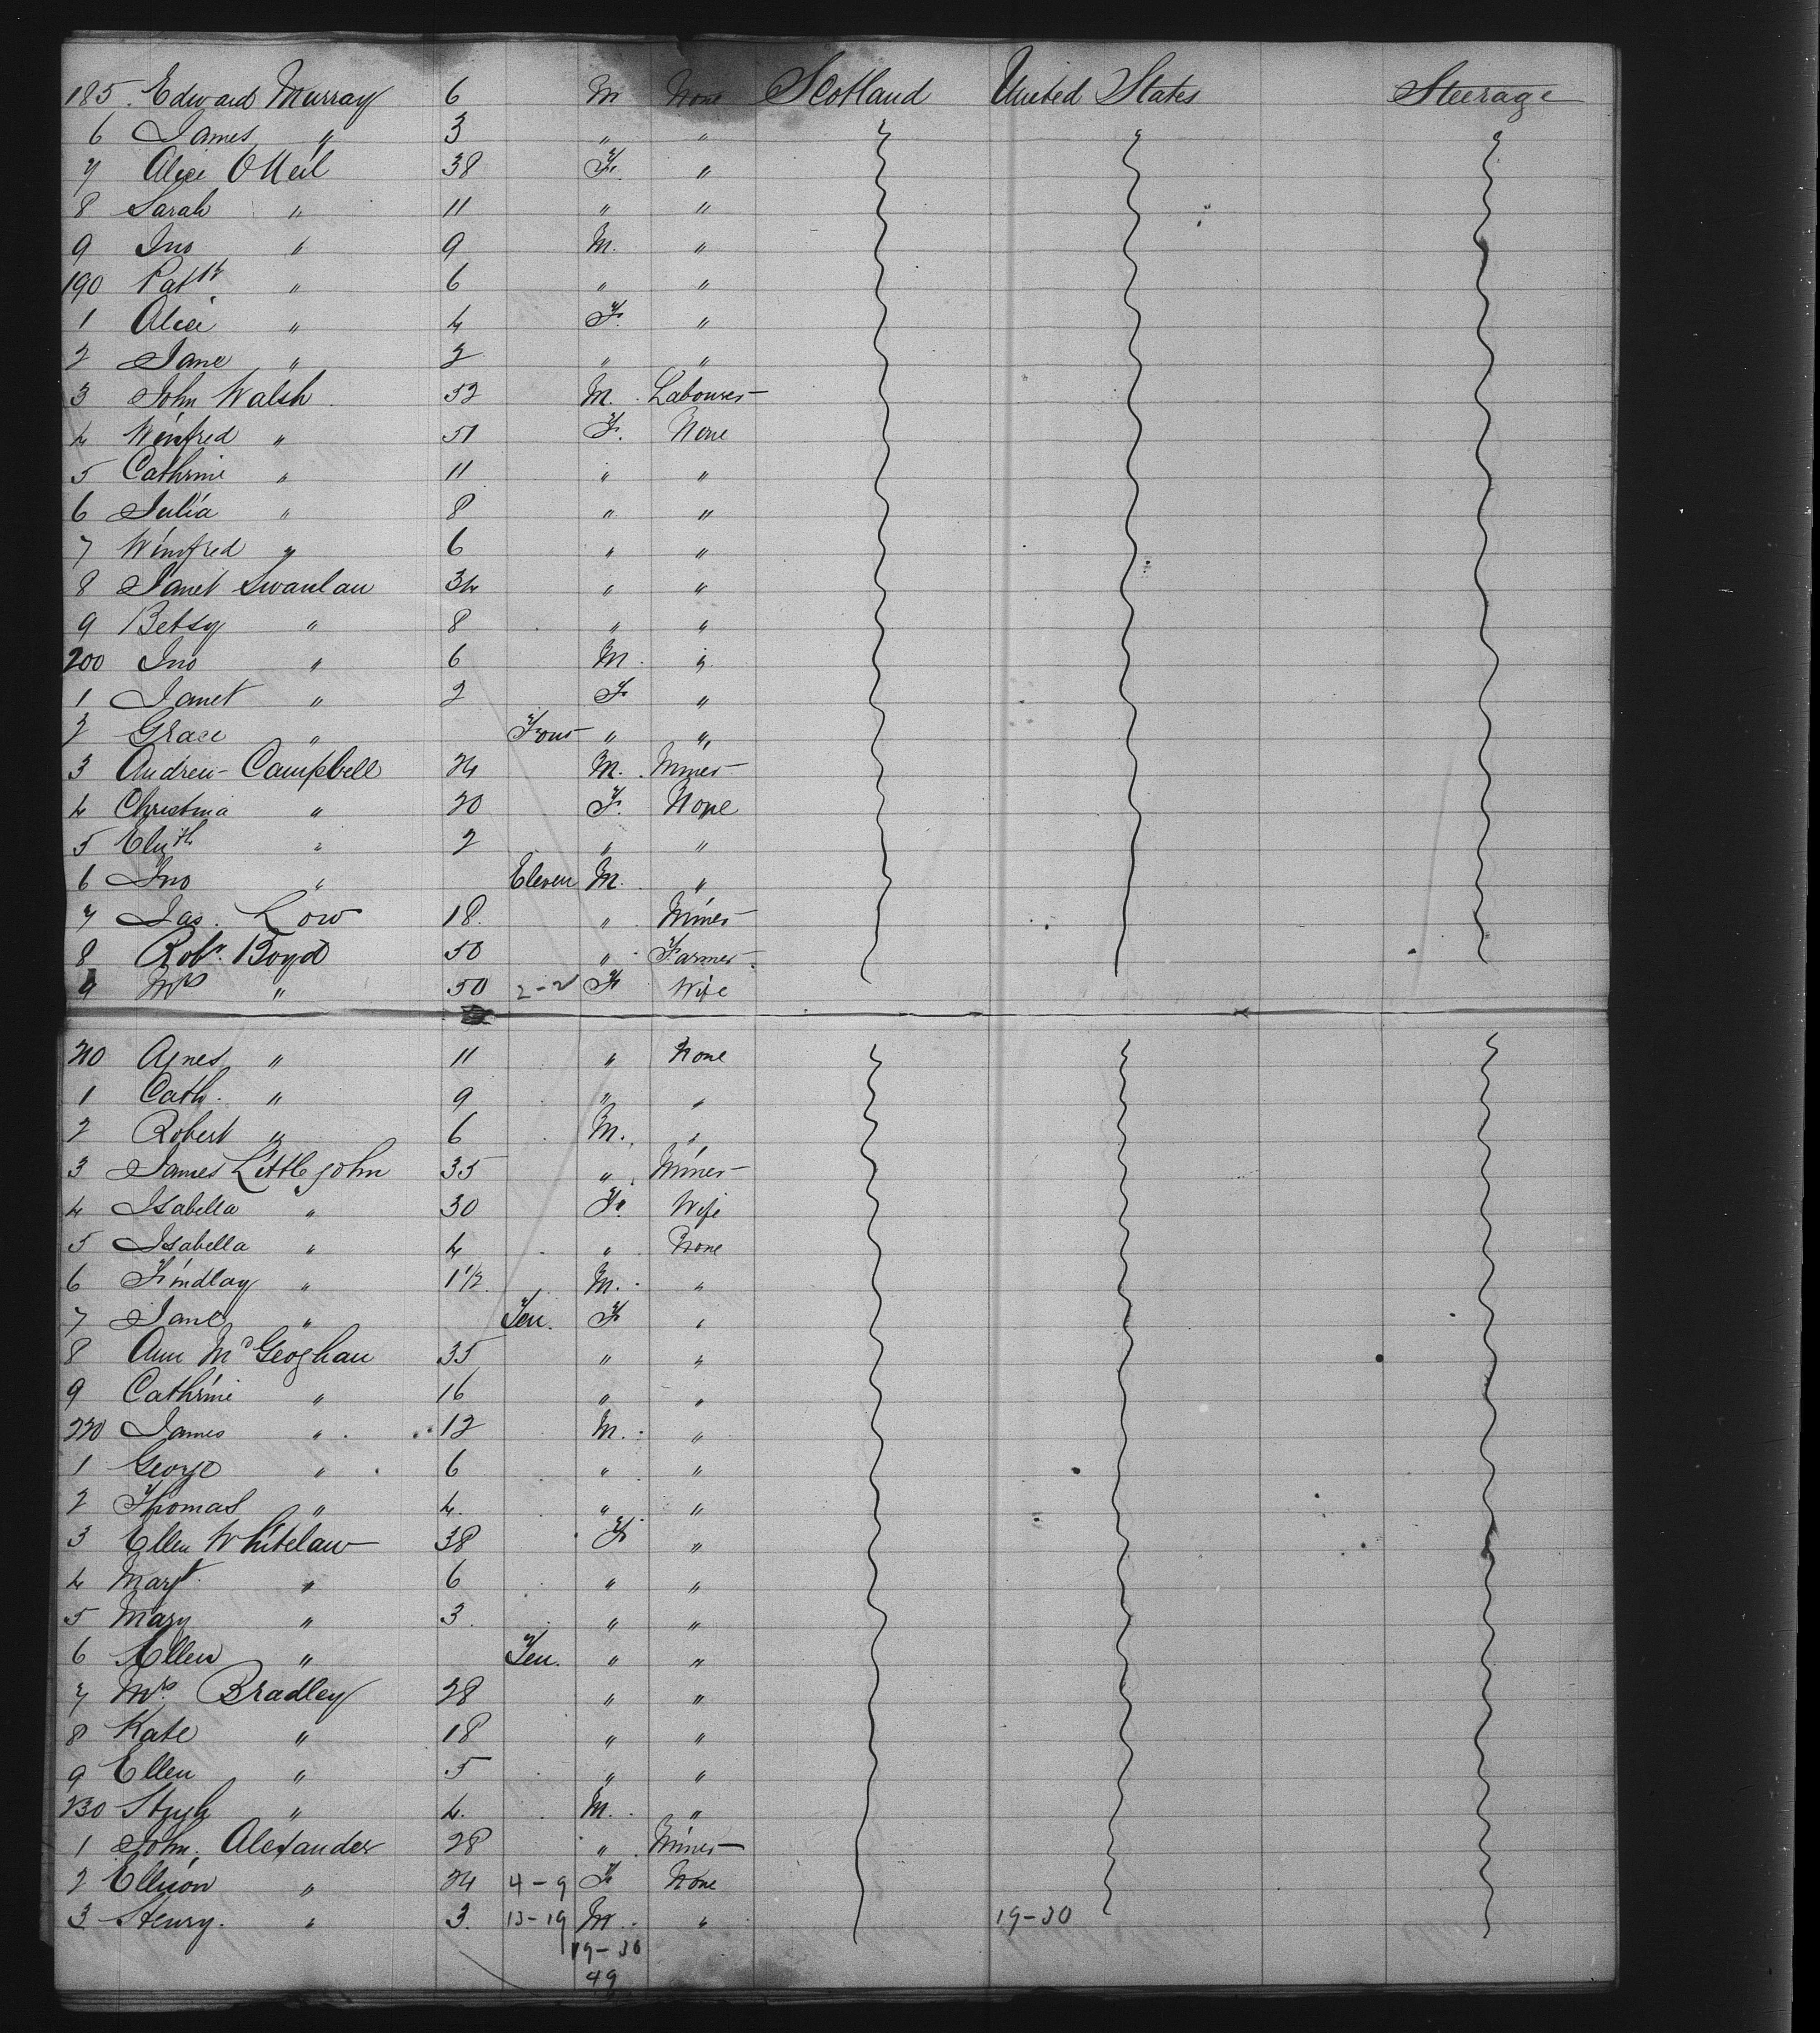 185 Edward Murray 6 M None Scotland United States Steerage
6 James " 3 " "
7 Alice O'Neil 38 F. "
8 Sarah " 11 " "
9 Jno " 9 M. "
190 Patk " 6 " "
1 Alice " 4 F. "
2 Jane " 2 " "
3 John Walsh 52 M. Labourer
4 Winifred " 51 F. None
5 Cathrine " 11 " "
6 Julia " 8 " "
7 Winifred " 6 " "
8 Janet Swanlan 34 " "
9 Betsy " 8 " "
200 Jno " 6 M. "
1 Janet " 2 F. "
2 Grace " Four " "
3 Andrew Campbell 24 M. Miner
4 Christina " 20 F. None
5 Elizth " 2 " "
6 Jno " Eleven M. "
7 Jas. Low 18. " Miner
8 Robt. Boyd 50 " Farmer
9 Mrs " 50 2-2 F. Wife
210 Agnes " 11 " None
1 Cath. " 9 " "
2 Robert " 6 M. "
3 James Littlejohn 35 " Miner
4 Isabella " 30 F. Wife
5 Isabella " 4 " None
6 Findlay " 1 1/2 M. "
7 Jane " Ten. F. "
8 Ann McGeoghan 35 " "
9 Cathrine " 16 " "
220 James " 12 M. "
1 George " 6 " "
2 Thomas " 4. " "
3 Ellen Whitelaw 38 F. "
4 Margt. " 6 " "
5 Mary " 3. " "
6 Ellen " Ten. " "
7 Mrs. Bradley 28 " "
8 Kate " 18 " "
9 Ellen " 5 " "
230 Hugh " 4. M. "
1 John. Alexander 28 " Miner
2 Ellison " 24 4-9 F. None
3 Henry. " 3. 13-19 M. " 19-30
19-30
49